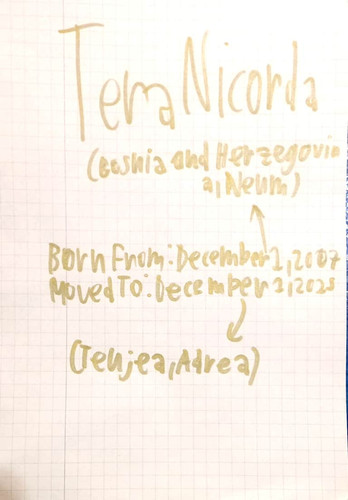 Tema Nicorda
(Bosnia and Herzegovin
a, Neum)
Born From: December 1, 2007
Moved To: December 1, 2025
(Tenjea, Adrea)